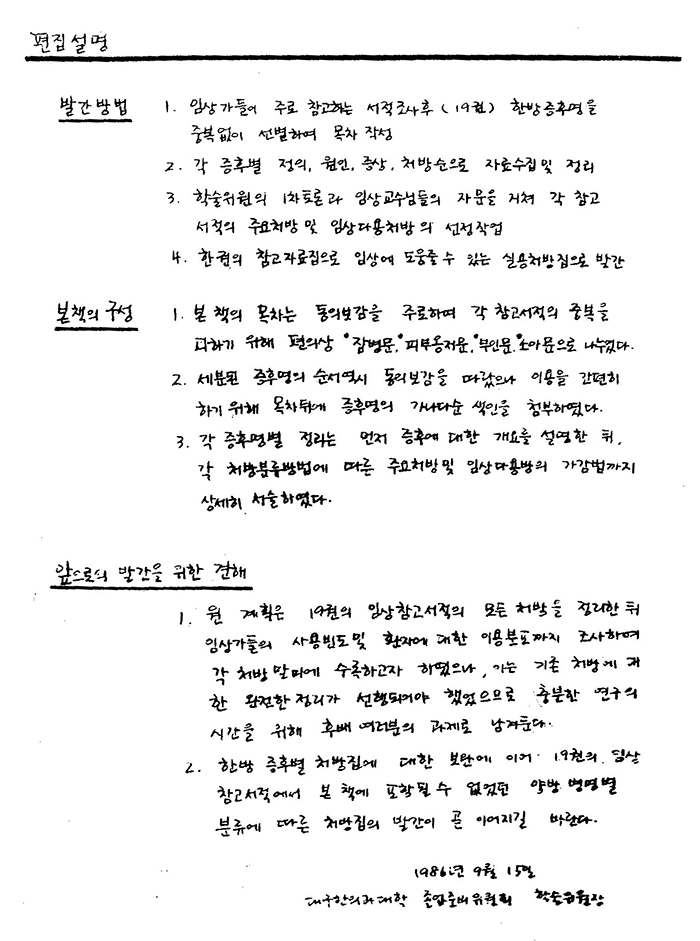 편집설명
발간방법 1. 임상가들이 주로 참고하는 서적조사후 (19권) 한방증후명을
중복없이 선별하여 목차 작성
2. 각 증후별 정의, 원인, 증상, 처방순으로 자료수집및 정리
3. 학술위원의 1차토론과 임상교수님들의 자문을 거쳐 각 참고
서적의 주요처방 및 임상다용처방의 선정작업
4. 한권의 참고자료집으로 임상에 도움줄 수 있는 실용처방집으로 발간
본책의 구성 1. 본 책의 목차는 동의보감을 주로하여 각 참고서적의 중복을
피하기 위해 편의상 "잡병문, "피부옹저문, "부인문, "소아문으로 나누었다.
2. 세분된 증후명의 순서역시 동의보감을 따랐으나 이용을 간편히
하기 위해 목차뒤에 증후명의 가나다순 색인을 첨부하였다.
3. 각 증후명별 정리는 먼저 증후에 대한 개요를 설명한 뒤,
각 처방분류방법에 따른 주요처방및 임상다용방의 가감법까지
상세히 서술하였다.
앞으로의 발간을 위한 견해
1. 원 계획은 19권의 임상참고서적의 모든 처방을 정리한 뒤
임상가들의 사용빈도및 환자에 대한 이용분포까지 조사하여
각 처방 말미에 수록하고자 하였으나, 이는 기존 처방에 대
한 완전한 정리가 선행되어야 했었으므로 충분한 연구의
시간을 위해 후배 여러분의 과제로 남겨둔다.
2. 한방 증후별 처방집에 대한 보완에 이어 19권의 임상
참고서적에서 본 책에 포함될 수 없었던 양방 병명별
분류에 따른 처방집의 발간이 곧 이어지길 바란다.
1986년 9월 15일
대구한의과대학 졸업준비위원회 학술위원장